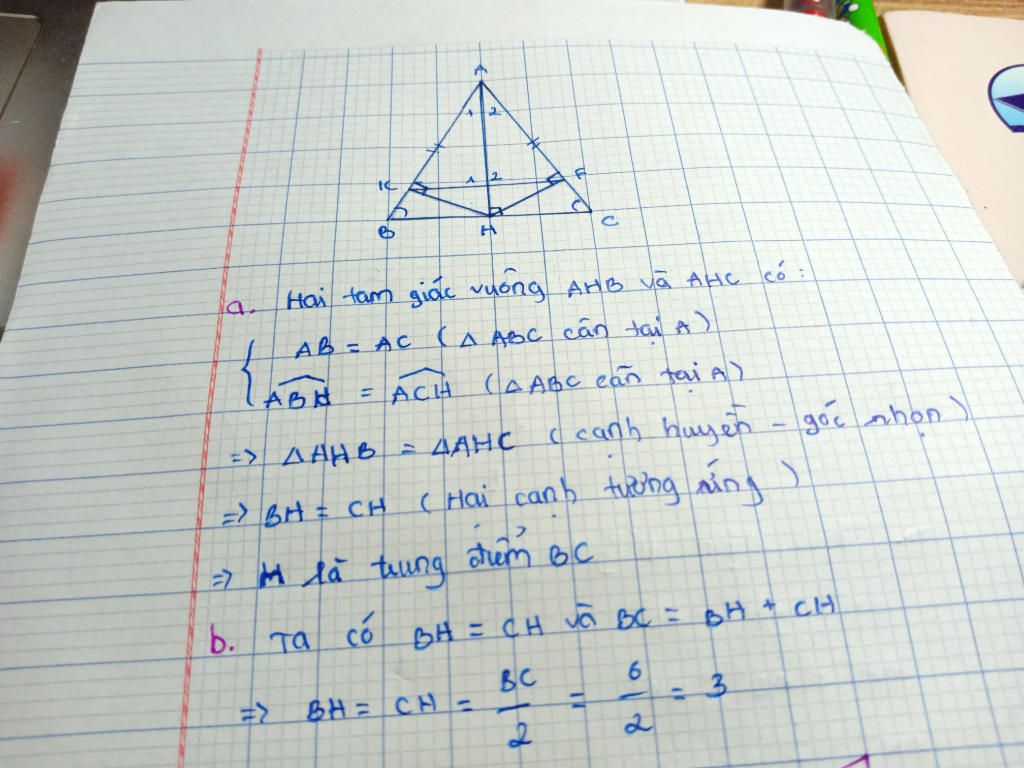 A
1 2
K 1 2 F
B H C
a. Hai tam giác vuông AHB và AHC có:
AB = AC (△ABC cân tại A)
ABH = ACH (△ABC cân tại A)
=> △AHB = △AHC (cạnh huyền - góc nhọn)
=> BH = CH (Hai cạnh tương ứng)
=> H là trung điểm BC
b. Ta có BH = CH và BC = BH + CH
=> BH = CH = BC/2 = 6/2 = 3